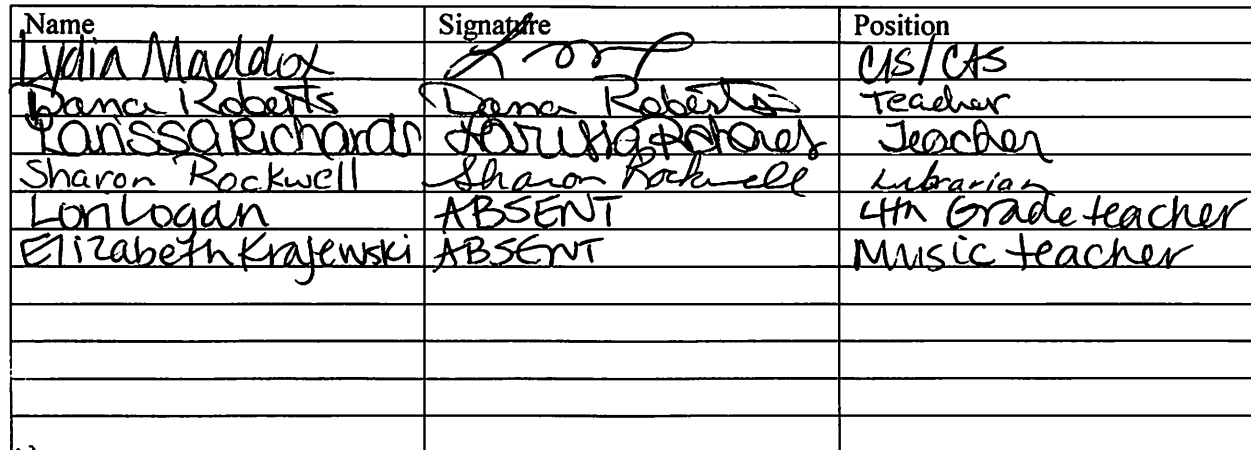 Name Signature Position
Lydia Maddox CIS/CAS
Dana Roberts Dana Roberts Teacher
Larissa Richards Larissa Richards Teacher
Sharon Rockwell Sharon Rockwell Librarian
Lori Logan ABSENT 4th Grade teacher
Elizabeth Krajewski ABSENT Music teacher